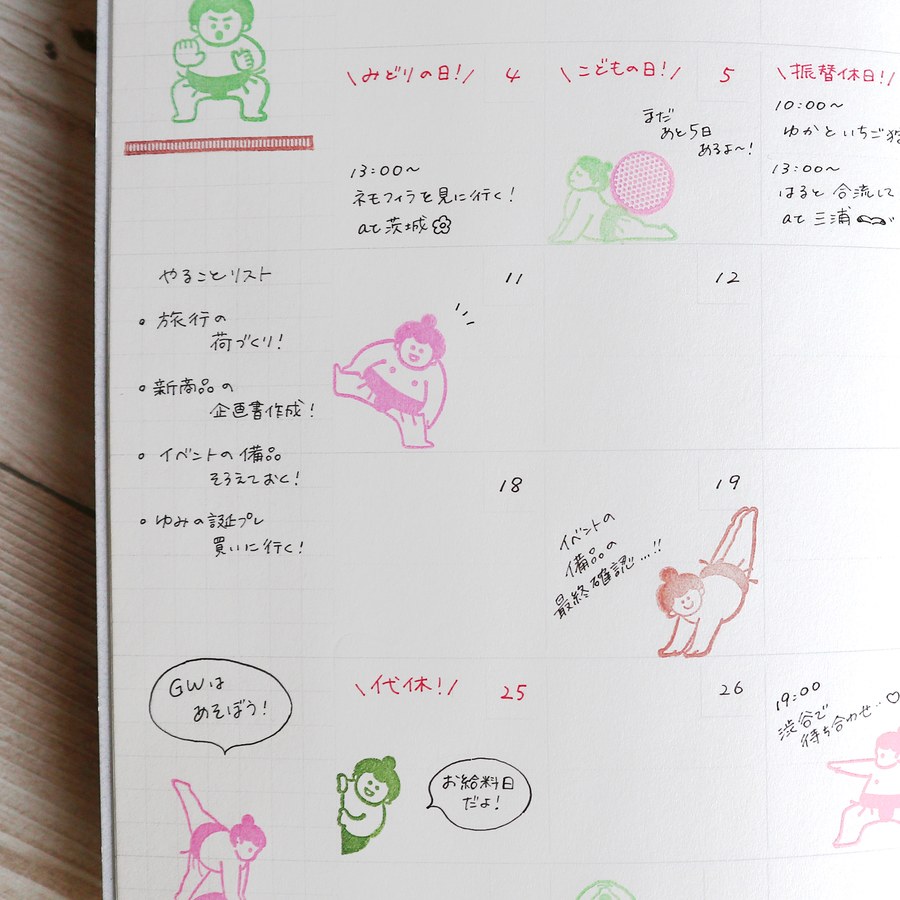 \みどりの日!/ 4
\こどもの日!/ 5
\振替休日!/
まだ
あと5日
あるよ~!
10:00~
ゆかといちご
13:00~
ネモフィラを見に行く!
at 茨城
13:00~
はると合流して
at 三浦
やることリスト
11
12
• 旅行の
荷づくり!
• 新商品の
企画書作成!
• イベントの備品
そろえておく!
• ゆみの誕プレ
買いに行く!
18
19
イベントの
備品の
最終確認…!!
GWは
あそぼう!
\代休!/ 25
26
お給料日
だよ!
19:00
渋谷で
待ち合わせ…♡